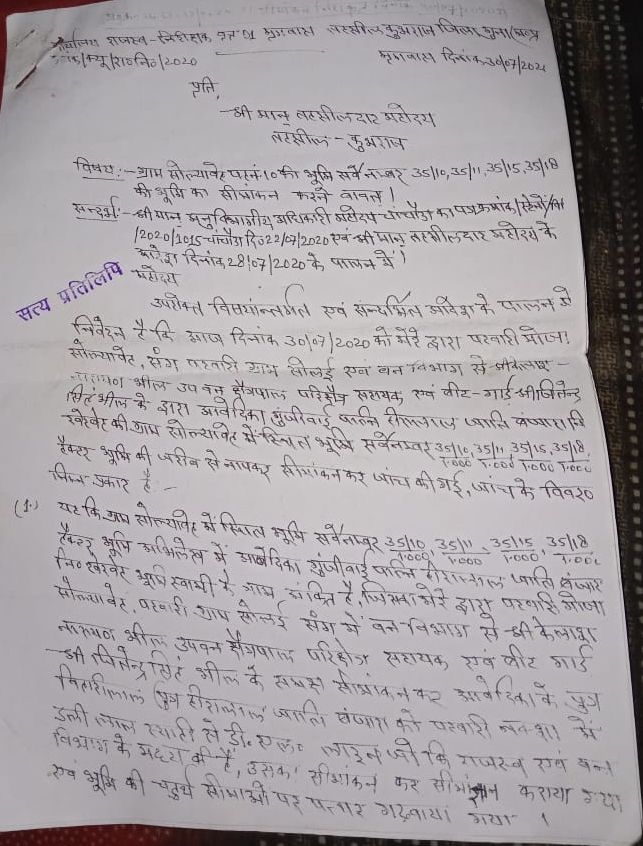 कार्यालय राजस्व-निरीक्षक वृत 01 मृगवास तहसील कुंभराज जिला गुना (म०प्र०
क्रमांक/क्यू/रा०नि०/2020 मृगवास दिनांक 30/07/2020
प्रति,
श्री मान् तहसीलदार महोदय
तहसील - कुंभराज
विषय:- ग्राम सोल्यावेह प०ह०नं० 10 की भूमि सर्वे नम्बर 35/10, 35/11, 35/15, 35/18
की भूमि का सीमांकन करने बावत।
सन्दर्भ:- श्रीमान् अनुविभागीय अधिकारी महोदय चांचौड़ा का पत्र क्रमांक/स्टेनो/
/2020/1015 चांचौड़ा दि० 22/07/2020 एवं श्रीमान् तहसीलदार महोदय के
आदेश दिनांक 28/07/2020 के पालन में।
सत्य प्रतिलिपि
महोदय
उपरोक्त विषयान्तर्गत एवं सन्दर्भित आदेश के पालन में
निवेदन है कि आज दिनांक 30/07/2020 को मेरे द्वारा पटवारी मौजा
सोल्यावेह, संग पटवारी ग्राम सोलई एवं वन विभाग से श्री कैलाश -
नारायण भील उप वन क्षैत्रपाल परिक्षेत्र सहायक एवं वीट-गार्ड श्री जितेन्द्र
सिंह भील के द्वारा आवेदिका गुंजीबाई पत्नि हीरालाल जाति बंजारा नि०
खेरखेट की ग्राम सोल्यावेह में स्थित भूमि सर्वे नम्बर 35/10, 35/11, 35/15, 35/18,
1.000 1.000 1.000 1.000
हैक्टर भूमि की जरीब से नापकर सीमांकन कर जांच की गई, जांच के विवरण
निम्न प्रकार है:-
(1.) यह कि ग्राम सोल्यावेह में स्थित भूमि सर्वे नम्बर 35/10, 35/11, 35/15, 35/18
1.000, 1.000, 1.000, 1.000
हैक्टर भूमि अभिलेख में आवेदिका गुंजीबाई पत्नि हीरालाल जाति बंजारा
नि० खेरखेट भूमि स्वामी के नाम अंकित है, जिसका मेरे द्वारा पटवारी मौजा
सोल्यावेह, पटवारी ग्राम सोलई संग में वन विभाग से श्री कैलाश
नारायण भील उपवन क्षैत्रपाल परिक्षेत्र सहायक एवं वीट गार्ड
श्री जितेन्द्र सिंह भील के समक्ष सीमांकन कर आवेदिका के पुत्र
विहारीलाल पुत्र हीरालाल जाति बंजारा को पटवारी नक्शा में
डली लाल स्याही से डी. एल. लाइन जो कि राजस्व एवं वन
विभाग के मध्य की है, उसका सीमांकन कर सीमा ज्ञान कराया गया
एवं भूमि की चतुर्थ सीमाओं पर पत्थर गढ़वाया गया।